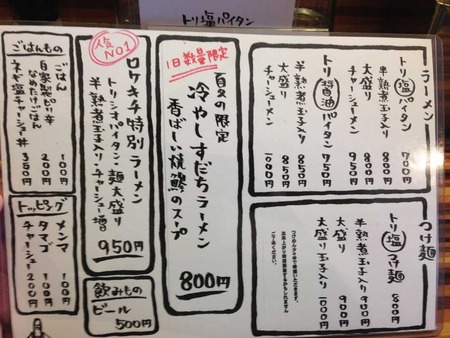 トリ塩パイタン
ラーメン
トリ塩パイタン 700円
半熟煮玉子入り 800円
大盛り 800円
チャーシューメン 950円
トリ醤油パイタン 750円
半熟煮玉子入り 850円
大盛り 850円
チャーシューメン 1000円
つけ麺
トリ塩つけ麺 800円
半熟煮玉子入り 900円
大盛り 900円
大盛り玉子入り 1000円
1日数量限定
夏の限定
冷やしすだちラーメン
香ばしい焼鯵のスープ
800円
人気NO1
ロケキチ特別ラーメン
トリシオパイタン・麺大盛り
半熟煮玉子入り・チャーシュー増
950円
飲みもの
ビール
500円
ごはんもの
ごはん 100円
自家製なめたけごはん 200円
ネギ塩チャーシュー丼 350円
トッピング
メンマ 100円
タマゴ 100円
チャーシュー 200円